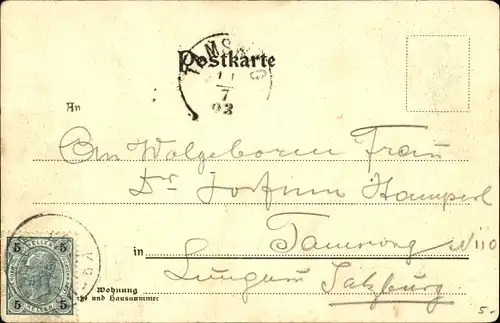 Postkarte
TAMSWEG
11
7
03
An
An Wolgeboren Frau
Dr Hamperl
in Tamsweg N 110
Lungau Salzburg
Wohnung
und Hausnummer
5
5
HELLER
5
5
5